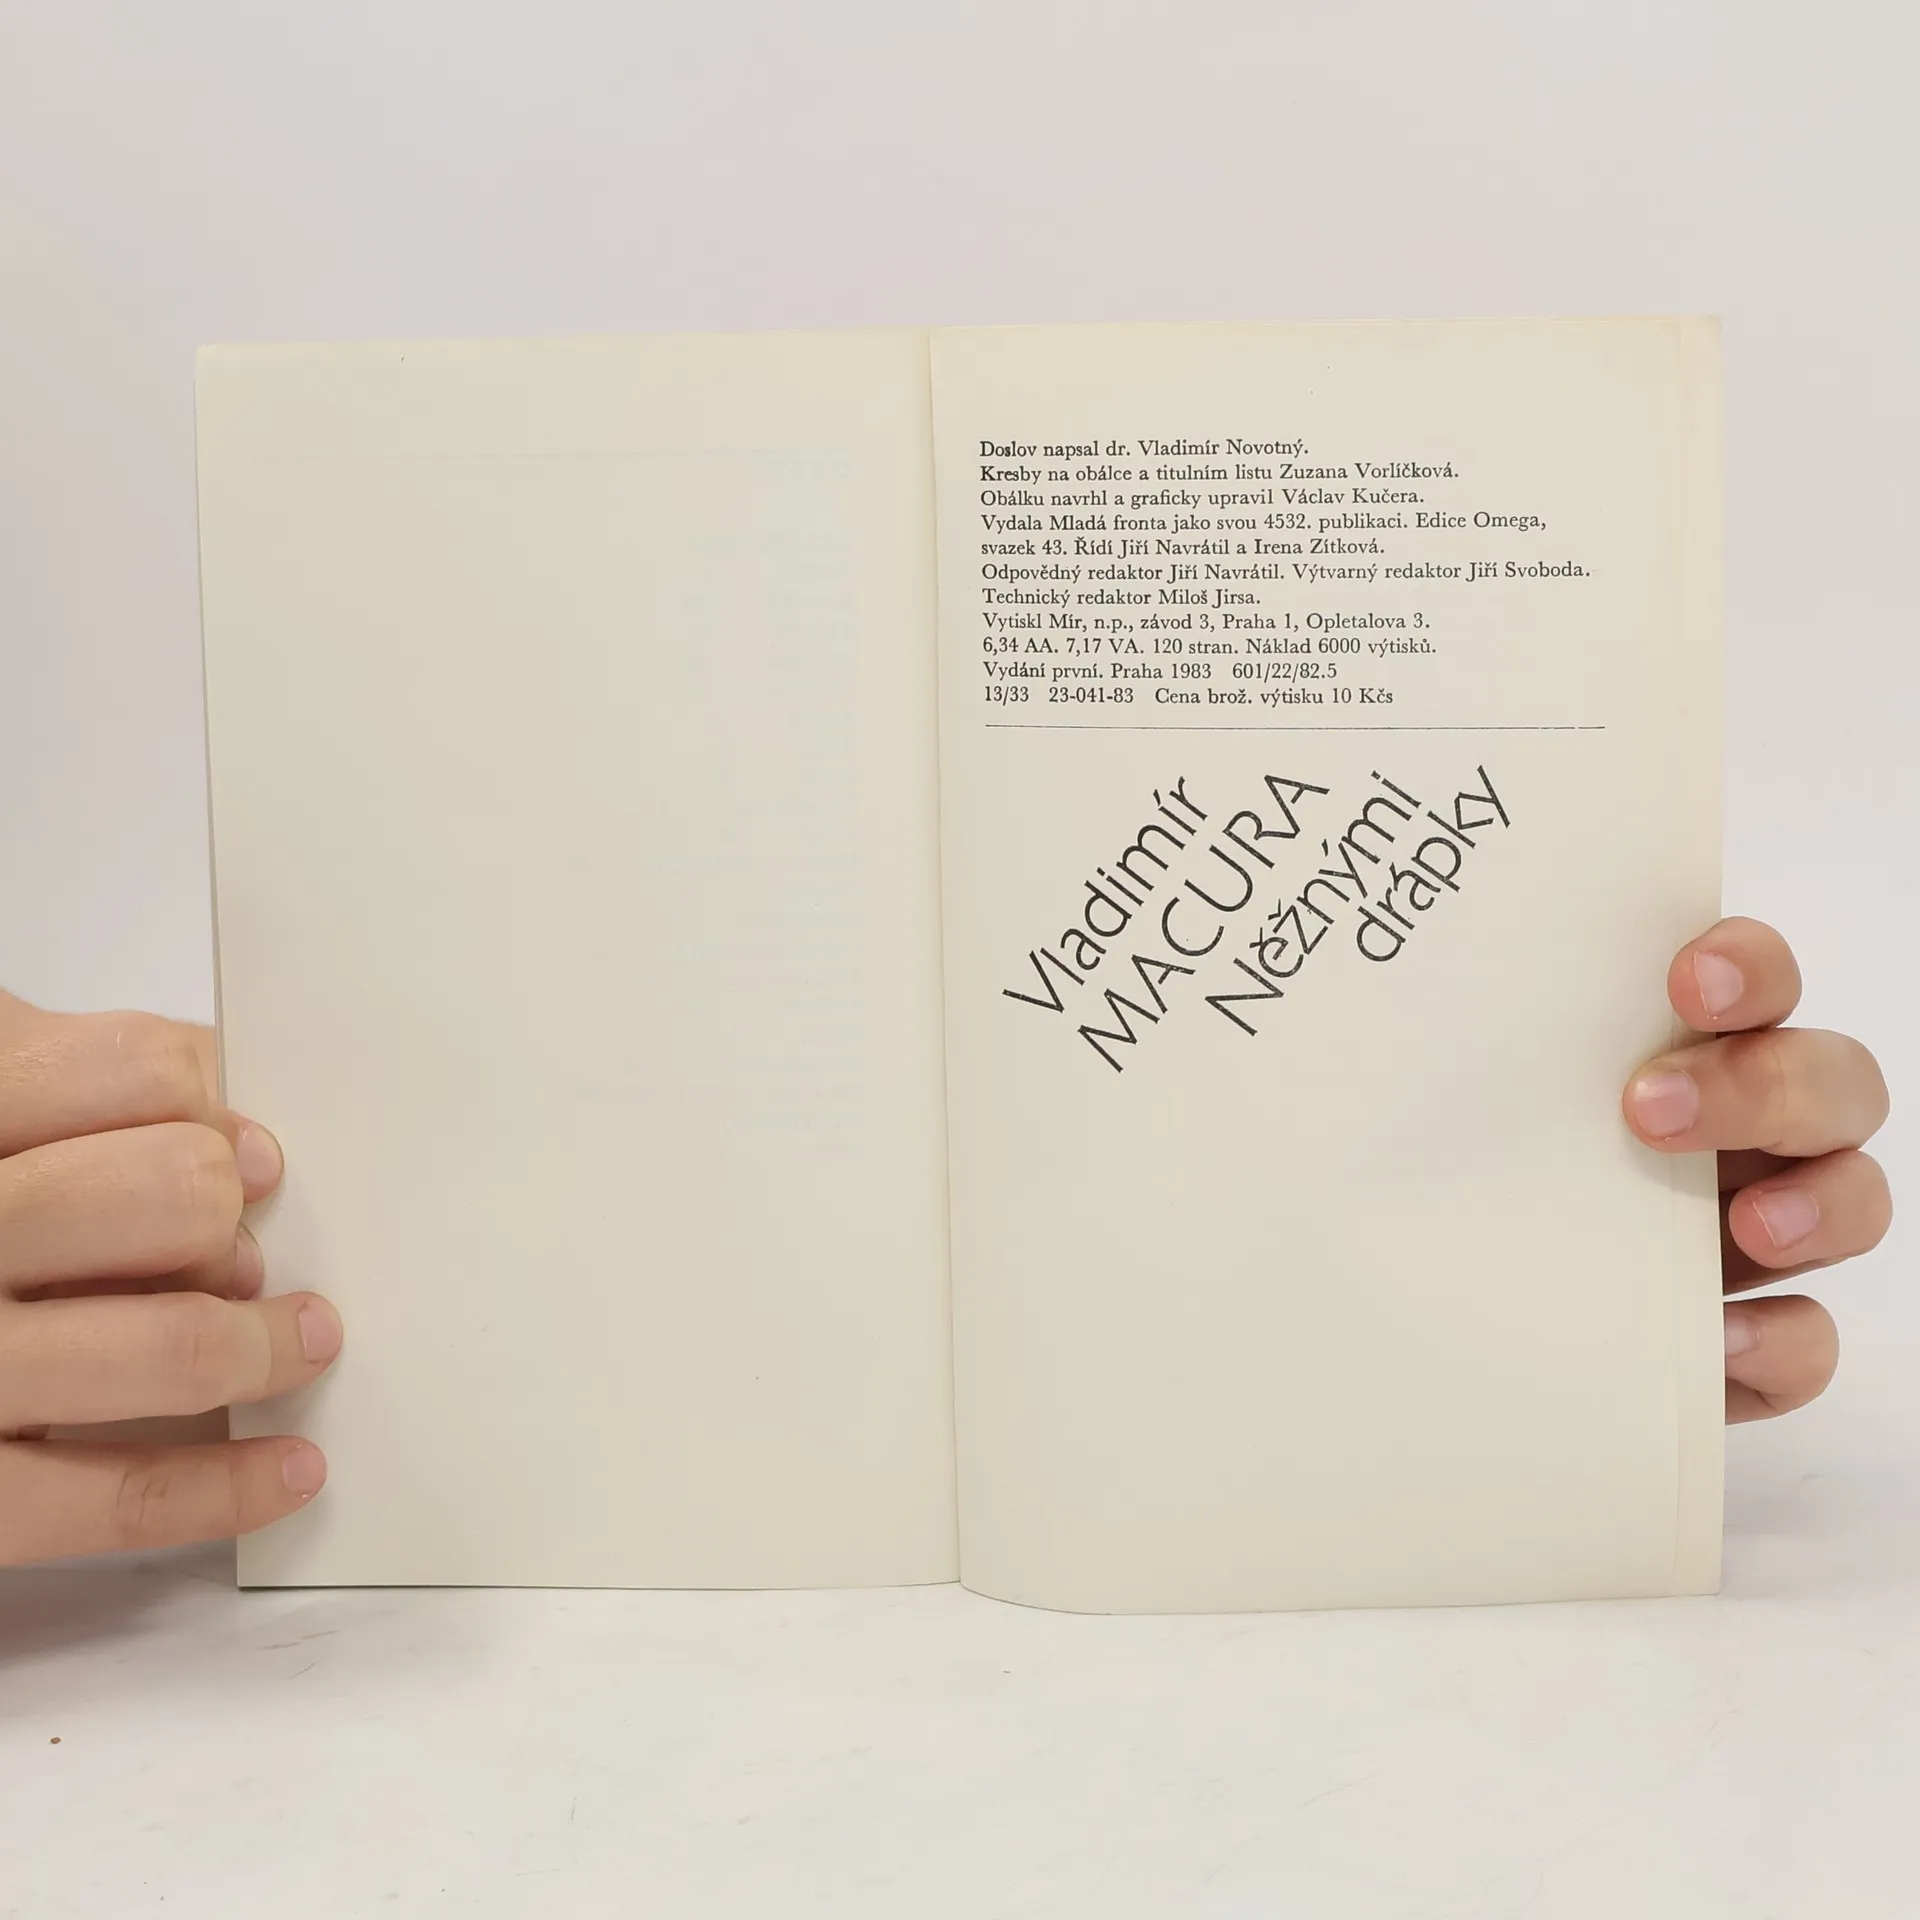 Doslov napsal dr. Vladimír Novotný.
Kresby na obálce a titulním listu Zuzana Vorlíčková.
Obálku navrhl a graficky upravil Václav Kučera.
Vydala Mladá fronta jako svou 4532. publikaci. Edice Omega,
svazek 43. Řídí Jiří Navrátil a Irena Zítková.
Odpovědný redaktor Jiří Navrátil. Výtvarný redaktor Jiří Svoboda.
Technický redaktor Miloš Jirsa.
Vytiskl Mír, n.p., závod 3, Praha 1, Opletalova 3.
6,34 AA. 7,17 VA. 120 stran. Náklad 6000 výtisků.
Vydání první. Praha 1983 601/22/82.5
13/33 23-041-83 Cena brož. výtisku 10 Kčs
Vladimír
MACURA
Něžnými
drápky